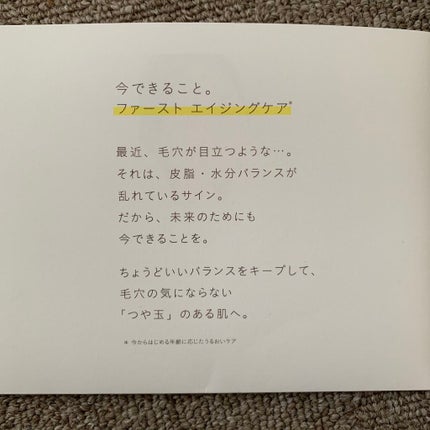 今できること。
ファースト エイジングケア*
最近、毛穴が目立つような…。
それは、皮脂・水分バランスが
乱れているサイン。
だから、未来のためにも
今できることを。
ちょうどいいバランスをキープして、
毛穴の気にならない
「つや玉」のある肌へ。
* 今からはじめる年齢に応じたうるおいケア